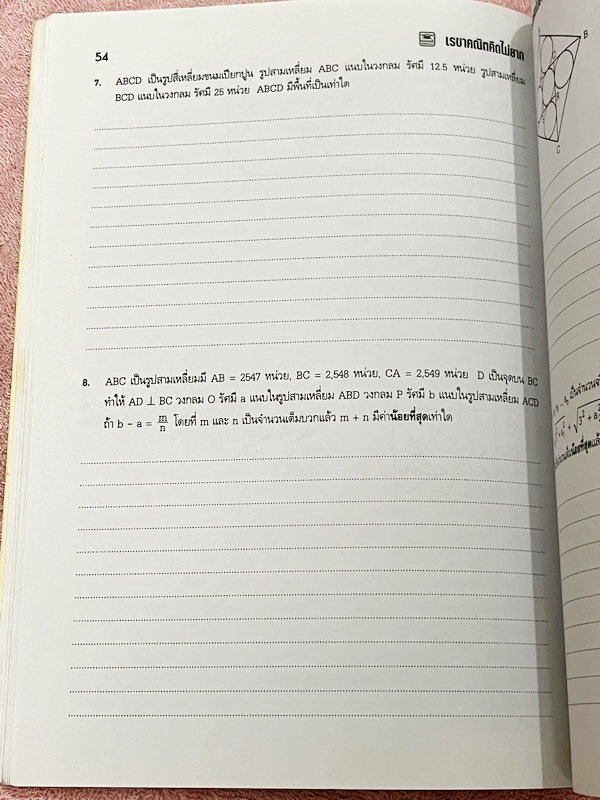 54
เรขาคณิตคิดไม่ยาก
7. ABCD เป็นรูปสี่เหลี่ยมขนมเปียกปูน รูปสามเหลี่ยม ABC แนบในวงกลม รัศมี 12.5 หน่วย รูปสามเหลี่ยม
BCD แนบในวงกลม รัศมี 25 หน่วย ABCD มีพื้นที่เป็นเท่าใด
8. ABC เป็นรูปสามเหลี่ยมมี AB = 2547 หน่วย, BC = 2,548 หน่วย, CA = 2,549 หน่วย D เป็นจุดบน BC
ทำให้ AD ⊥ BC วงกลม O รัศมี a แนบในรูปสามเหลี่ยม ABD วงกลม P รัศมี b แนบในรูปสามเหลี่ยม ACD
ถ้า b - a = m/n โดยที่ m และ n เป็นจำนวนเต็มบวกแล้ว m + n มีค่าน้อยที่สุดเท่าใด
B
C